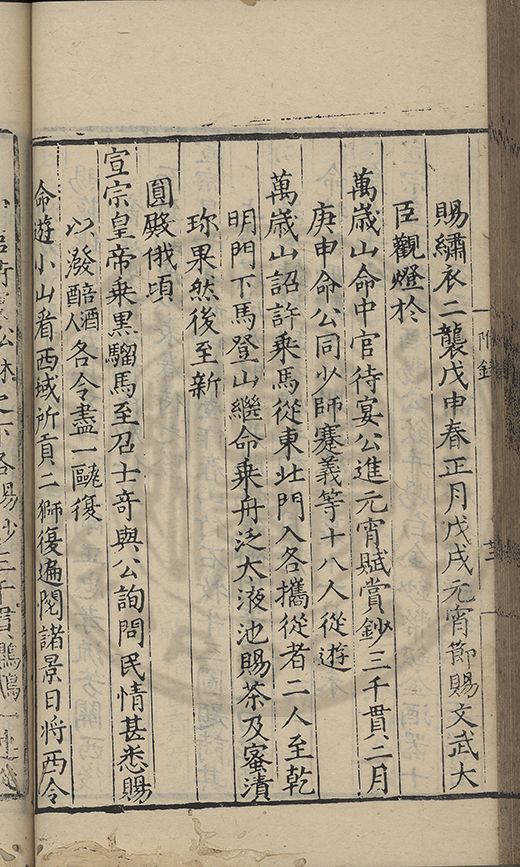 賜繡衣二襲戊申春正月戊戌元宵節賜文武大
臣觀燈於
萬歲山命中官待宴公進元宵賦賞鈔三千貫二月
庚申命公同少師蹇義等十八人從遊
萬歲山詔許乘馬從東北門入各攜從者二人至乾
明門下馬登山繼命乘舟泛太液池賜茶及蜜漬
珎果然後至新
圓殿俄頃
宣宗皇帝乘黑騮馬至召士竒與公詢問民情甚悉賜
以潑醅酒人各令盡一甌復
命遊小山看西域所貢二獅復遍閱諸景日將西令
附錄